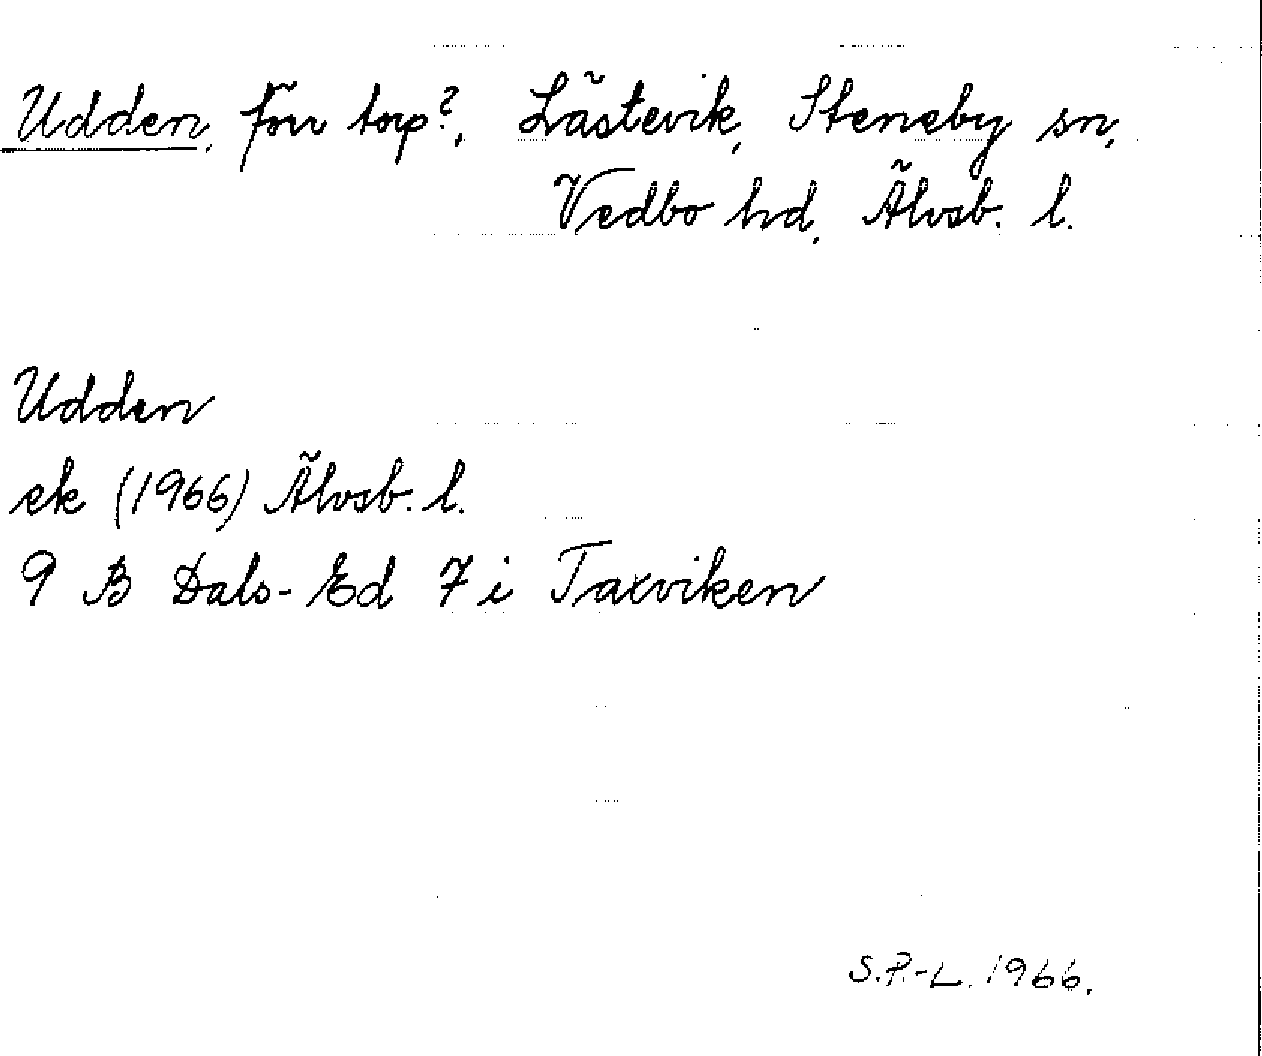 Udden, förr torp?, Lästevik, Steneby sn,
Vedbo hd, Älvsb. l.
Udden
ek (1966) Älvsb. l.
9 B Dals-Ed 7 i Taxviken
S.P.-L. 1966.